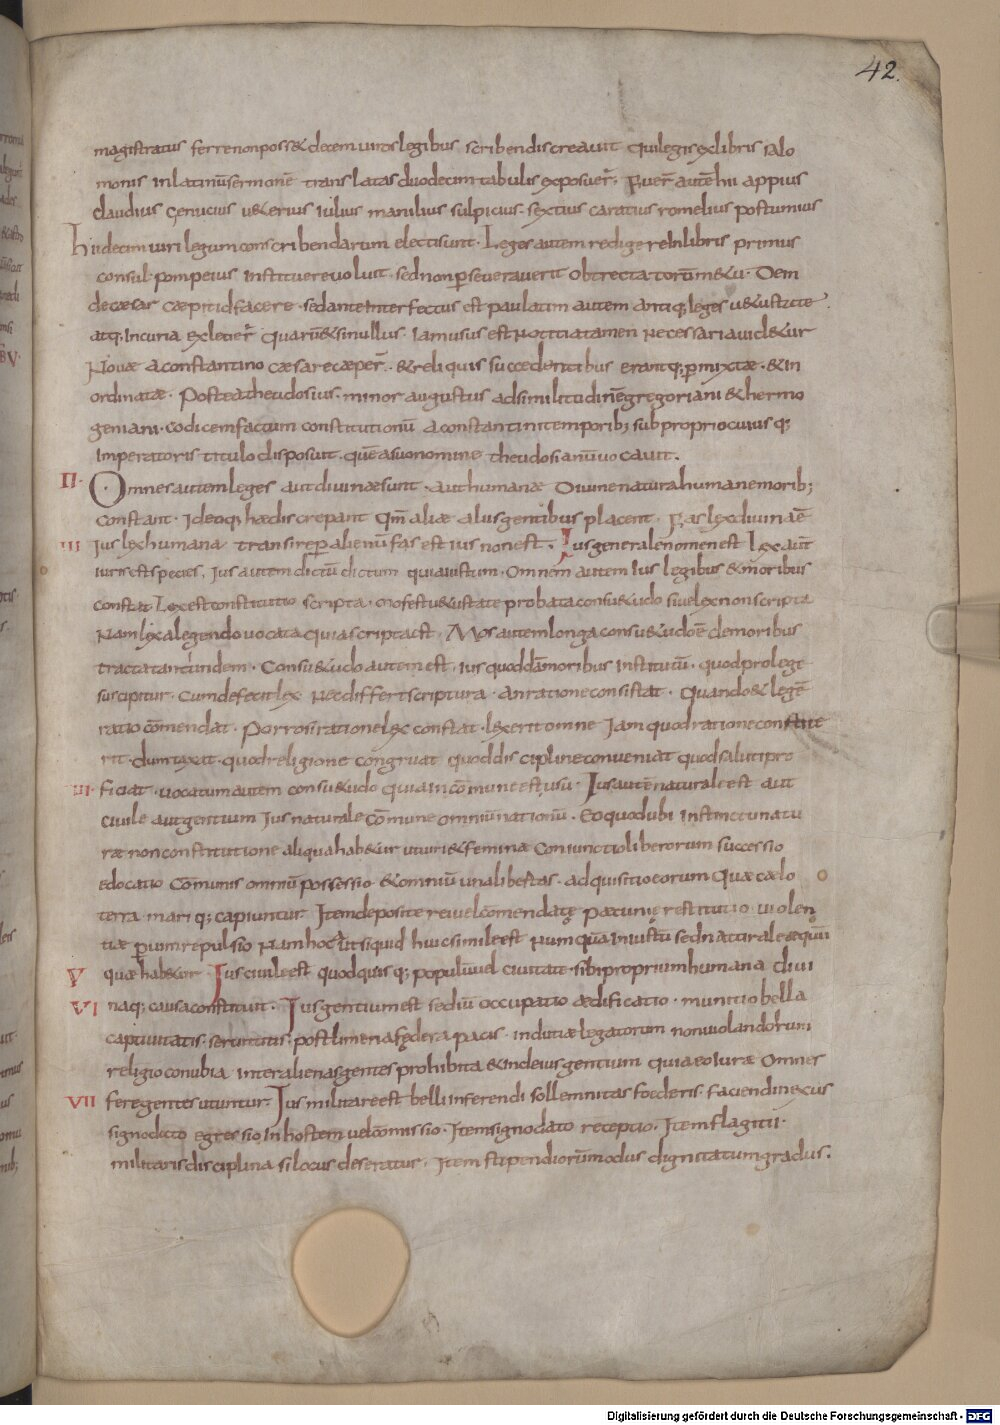 42.
magistratus ferre non poss& decem uiros legibus scribendis creauit qui legis exlibris salo
monis inlatinū sermonē translatas duodecim tabulis exposuer̄. Fuer̄ autē hii appius
claudius genucius u&erius iulius manilius sulpicius. sextius caratius romelius postumius
hii decim uiri legum conscribendarum electi sunt. Leges autem redigere inlibris primus
consul. pompeius instituere uoluit. sed non perseuerauerit obtrectatorum m&u. Dem
de caesar caepit id facere. sed ante interfectus est paulatim autem antiq; leges u&ustate
atq; incuria exoleuer̄ quarū &si nullus. iam usus est notitia tamen necessaria uid&ur
Nouae a constantino caesare caeper̄. & reliquis succedentibus erantq; permixtae. & in
ordinatae. Postea theudosius. minor augustus ad similitudinē gregoriani & hermo
geniani. codicem factum constitutionū a constantini temporib; sub proprio cuius q;
imperatoris titulo disposuit. quē a suo nomine theudosianū uocauit.
II. Omnes autem leges aut diuinae sunt. aut humanae Diuine natura humane morib;
constant. Ideoq; hae discrepant qm̄ aliae aliis gentibus placent. Fas lex diuina ē
III Ius lex humana transire per alienū fas est ius non est. Ius generale nomen est Lex aūt
iuris est species. Ius autem dictū dictum quia iustum. Omnem autem ius legibus & moribus
constat. Lex est constitutio scripta. mos est u&ustate probata consu&udo siue lex non scripta
Nam lex a legendo uocata quia scripta est. Mos autem longa consu&udo ē de moribus
tracta tantundem. Consu&udo autem est. ius quoddā moribus institutū. quod pro lege
suscipitur. cum deficit lex Nec differt scriptura. an ratione consistat. Quando & legē
ratio cōmendat. Porro si ratione lex constat. lex erit omne iam quod ratione constite
rit. dum taxat. quod religione congruat quod discipline conueniat quod saluti pro
IIII. ficiat. uocatum autem consu&udo quia in cōmune est usu. Ius autē naturale est aut
ciuile aut gentium Ius naturale cōmune omniū nationū. Eo quod ubi instinctu natu
rae non constitutione aliqua hab&ur ut uiri & feminae coniunctio liberorum successio
edocatio Communis omniū possessio & omniū una libertas. adquisitio eorum quae caelo
terra mari q; capiuntur Item deposite rei uel cōmendatę paecunię restitutio uiolen
tiae per uim repulsio Nam hoc aut siquid huic simile est Numquā iniustū sed naturale aequū
V quae hab&ur Ius ciuile est quod quis q; populū uel ciuitate sibi proprium humana diui
VI naq; causa constituit. Ius gentium est sediū occupatio aedificatio. munitio bella
captiuitatis. seruitutis. postlimena fędera pacis. indutiae legatorum non uiolandorum
religio conubia inter alienas gentes prohibita & inde ius gentium quia eo iurae omnes
VII fere gentes utuntur. Ius militare est belli inferendi sollemnitas foederis. faciendi nexus
signo dato egressio in hostem uel cōmissio. Item signo dato receptio. Item flagitii.
militaris disciplina si locus deseratur. Item stipendiorum modus dignitatum gradus.
Digitalisierung gefördert durch die Deutsche Forschungsgemeinschaft - DFG